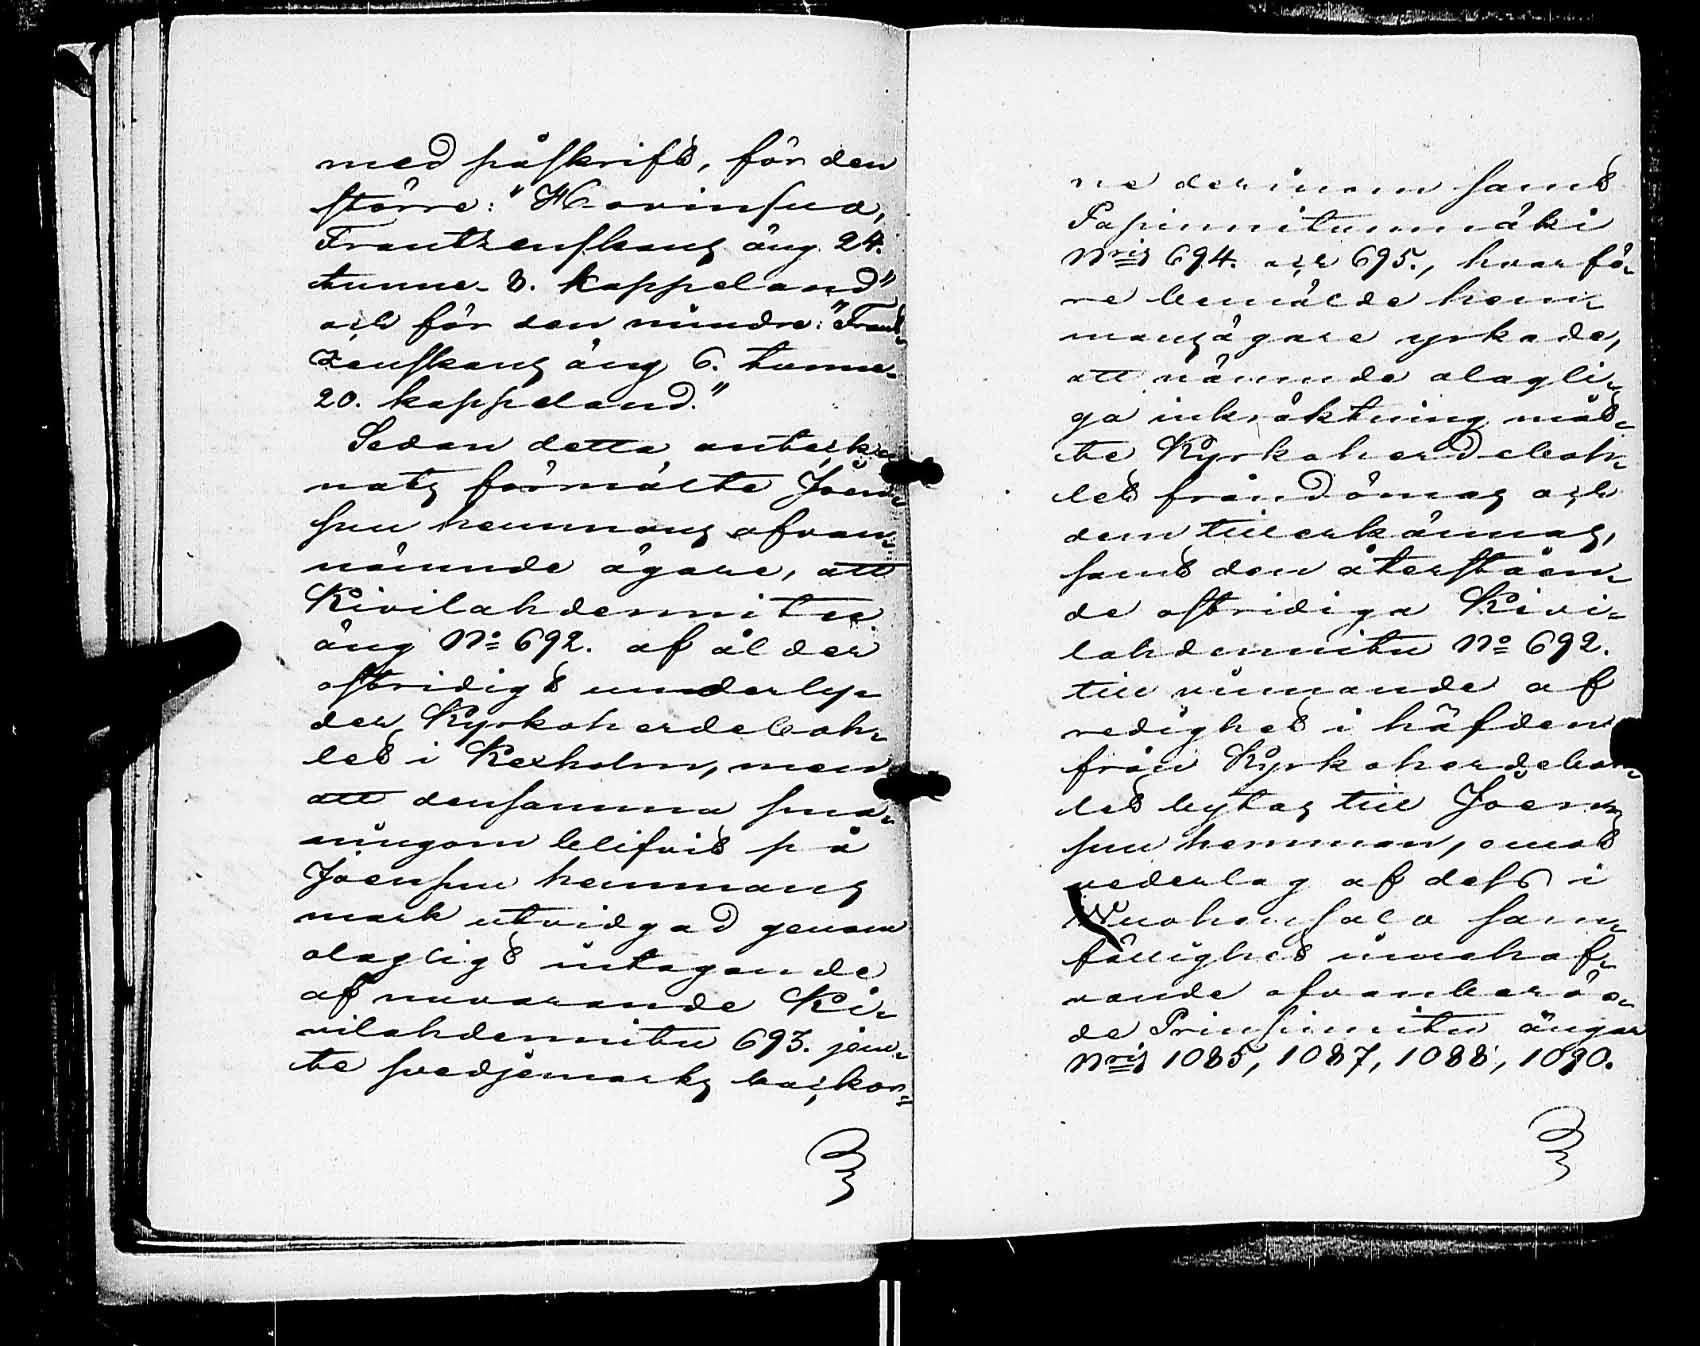 med påskrift, för den
större: "Hovinsua,
Frantzenskans äng 24.
tunne- 8. kappeland"
och för den mindre: "Frant-
zenskans äng 6. tunne-
20. kappeland."
Sedan detta anteck-
nats förmälte Joen-
suu hemmans ofvan-
nämnde ägare, att
Kivilahdennitu
äng No 692. af ålder
ostridigt underly-
der Kyrkoherdebol-
let i Kexholm, men
att densamma små-
ningom blifvit på
Joensuu hemmans
mark utvidgad genom
olagligt intagande
af nuvarande Ki-
vilahdennitu 693. jem-
te svedjemarks backor-
ne derinom samt
Papinniitunmäki
Nris 694. och 695., hvarfö-
re bemälde hem-
mansägare yrkade,
att nämnde olagli-
ga inkräktning måt-
te Kyrkoherdebol-
let fråndömas och
dem tillerkännas,
samt den återståen-
de ostridiga Kivi-
lahdennitu No 692.
till vinnande af
redighet i häfden
från Kyrkoherdebol-
let bytas till Joen-
suu hemman, emot
vederlag af dess i
Wuohensalo sam-
fällighet innehaf-
vande ofvanberör-
de Prinsinnitu ängar
Nris 1085, 1087, 1088, 1090.